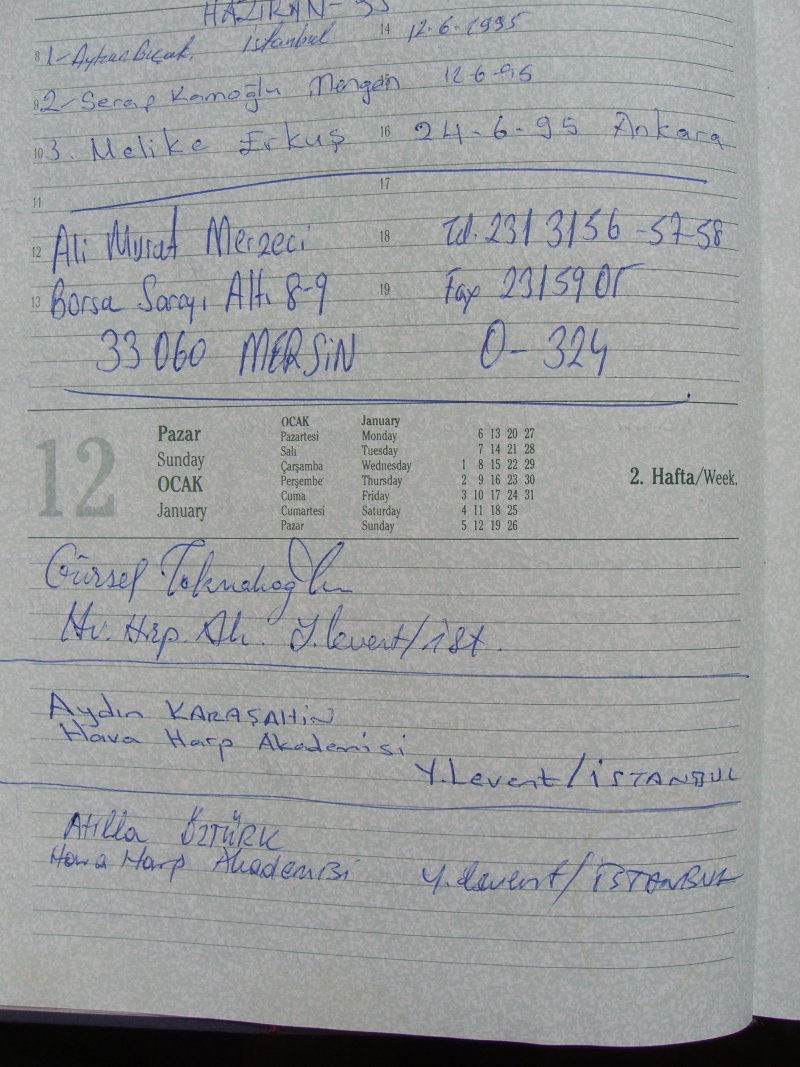 HAZIRAN-95
8 1- Ayhan Bıçak. istanbul 14 12.6.1995
9 2- Serap Kamoğlu Mengen 12 6-95
10 3. Melike Erkuş 16 24-6-95 Ankara
11 17
12 Ali Murat Merzeci 18 Tel. 231 3156-57-58
13 Borsa Sarayı Altı 8-9 19 Fax 2315905
33060 MERSiN 0-324
12
Pazar
Sunday
OCAK
January
OCAK January
Pazartesi Monday 6 13 20 27
Salı Tuesday 7 14 21 28
Çarşamba Wednesday 1 8 15 22 29
Perşembe Thursday 2 9 16 23 30
Cuma Friday 3 10 17 24 31
Cumartesi Saturday 4 11 18 25
Pazar Sunday 5 12 19 26
2. Hafta/Week.
Gürsel
Hv. Hrp. Ak. Y.levent/ist.
Aydın KARAŞAHİN
Hava Harp Akademisi
Y.Levent/İSTANBUL
Atilla ÖZTÜRK
Hava Harp Akademisi Y.Levent/İSTANBUL